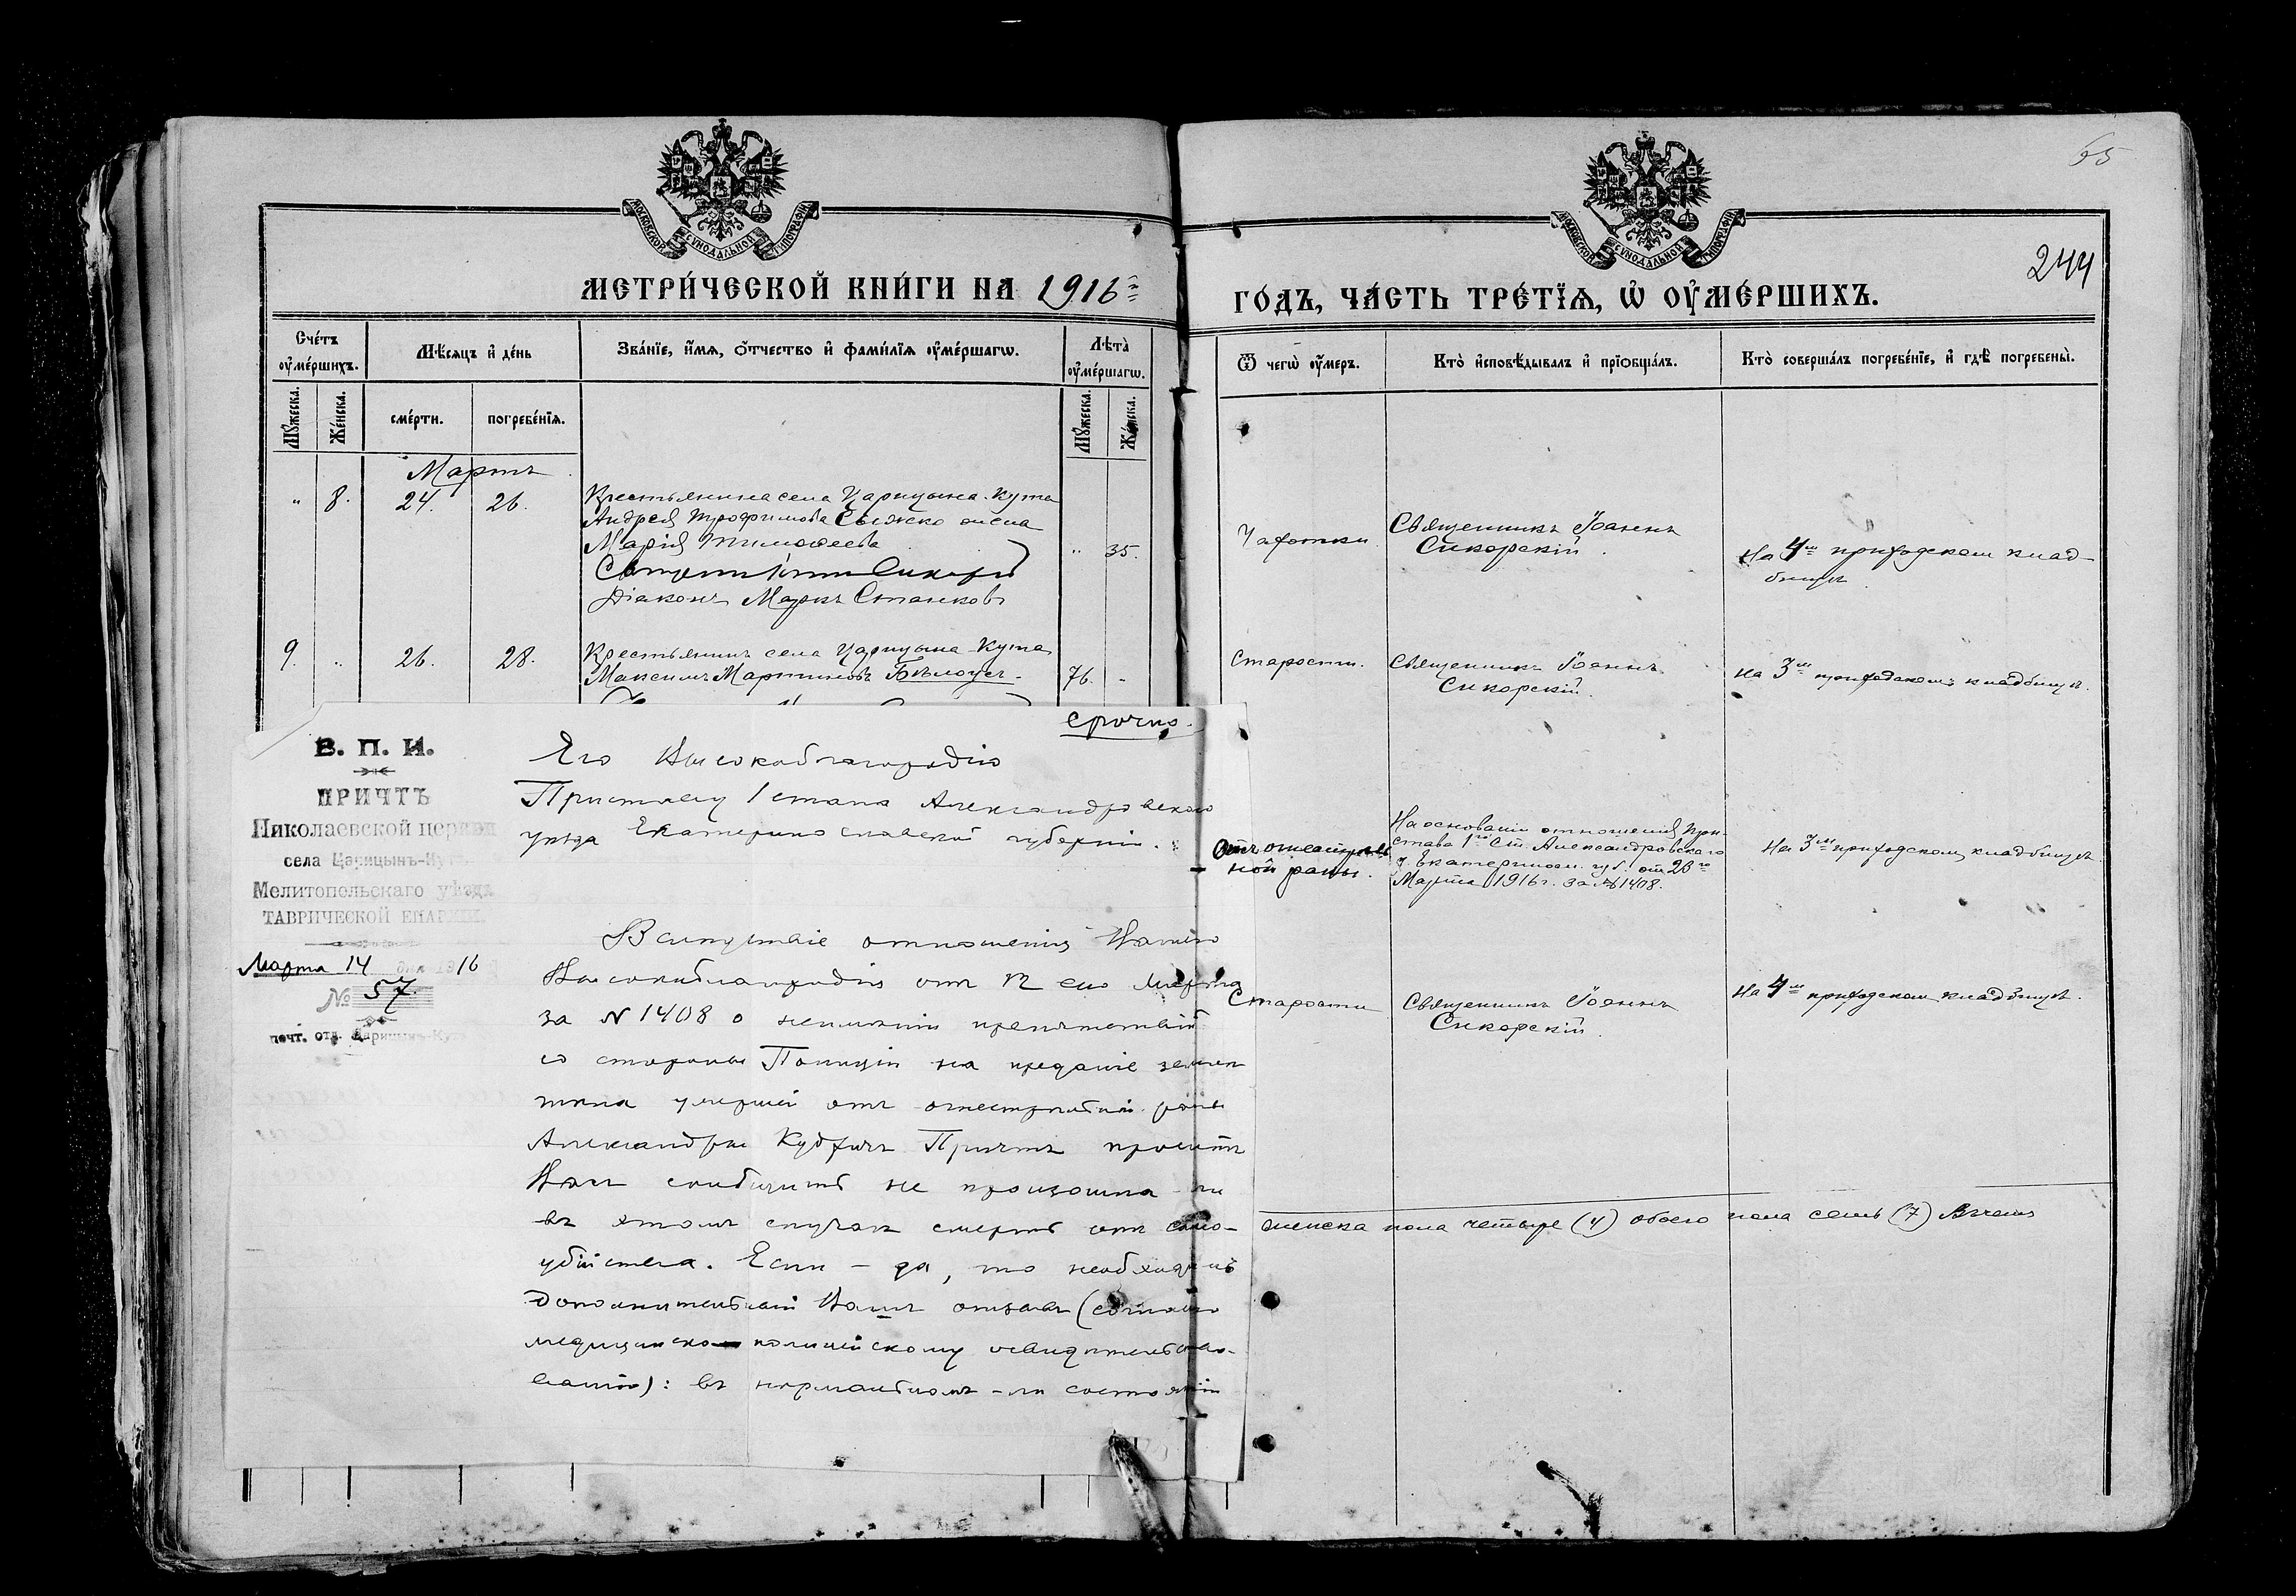 65
244
МОСКОВСКОЙ СУНОДАЛЬНОЙ ТИПОГРАФІИ
МОСКОВСКОЙ СУНОДАЛЬНОЙ ТИПОГРАФІИ
МЕТРИ́ЧЕСКОЙ КНИ́ГИ НА 1916
ГО́ДЪ, ЧА́СТЬ ТРЕ́ТЇѦ, Ѡ҆ ОУ҆МЕ́РШИХЪ.
Сче́тъ оу҆ме́ршихъ.
Мѣ́сяцъ и҆ де́нь
Зва́нїе, и҆́мѧ, ѻ҆́тчество и҆ фами́лїѧ оу҆ме́ршагѡ.
Лѣта̀ оу҆ме́ршагѡ.
Мꙋ́жеска.
Же́нска.
сме́рти.
погребе́нїѧ.
Мꙋ́жеска.
Же́нска.
Ѿ чегѡ̀ оу҆́меръ.
Кто̀ и҆сповѣ́дывалъ и҆ прїѻбща́лъ.
Кто̀ соверша́лъ погребе́нїе, и҆ гдѣ̀ погребены̀.
Мартъ
" 8. 24. 26.
Крестьянина села Царицына-Кута
Андрея Трофимова жена
Марія Тимофеева
" 35.
Діаконъ Маркъ Станковъ
Чахотки
Священникъ Іоаннъ
Сикорскій.
На 4мъ приходскомъ клад-
бищѣ.
9. " 26. 28.
Крестьянинъ села Царицына-Кута
Максимъ Мартиновъ Бѣлоусъ.
76. -
Старости.
Священникъ Іоаннъ
Сикорскій.
На 3мъ приходскомъ кладбищѣ.
Отъ огнестрѣль
ной раны.
На основаніи отношенія При-
става 1го Ст. Александровскаго
у. Екатеринослав. губ. отъ
Марта 1916 г. за № 1408.
На 3мъ приходскомъ кладбищѣ.
Старости
Священникъ Іоаннъ
Сикорскій.
На 4мъ приходскомъ кладбищѣ.
женска пола четыре (4) обоего пола семь (7)
В. П. И.
ПРИЧТЪ
Николаевской церкви
села Царицынъ-Кутъ
Мелитопольскаго уѣзда
ТАВРИЧЕСКОЙ ЕПАРХІИ.
Марта 14 дня 1916
№ 57
почт. отд. Царицынъ-Кутъ
срочно.
Его Высокоблагородію
Приставу 1 стана Александровскаго
уѣзда Екатеринославской губерніи.
Вслѣдствіе отношенія Вашего
Высокоблагородія отъ 12 сего Марта
за № 1408 о неимѣніи препятствій
со стороны Полиціи на преданіе землѣ
тѣла умершей отъ огнестрѣльной раны
Александры Кудричъ Причтъ проситъ
Васъ сообщить не произошла-ли
въ этомъ случаѣ смерть отъ само-
убійства. Если – да, то необходимъ
дополнительный Вашъ отзывъ (согласно
медицинско-полицейскому освидѣтельство-
ванію): въ нормальномъ-ли состояніи